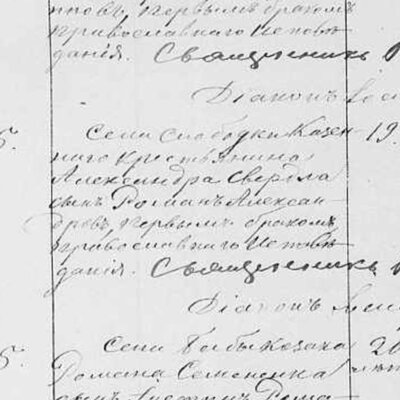 повъ, первымъ бракомъ
православнаго Исповѣ-
данія. Священникъ
Діаконъ
5. Села Слободки Казен- 19.
наго крестьянина
Александра Свергла
сынъ Романъ Алексан-
дровъ, первымъ бракомъ
православнаго Исповѣ-
данія. Священникъ
Діаконъ
5. Села козака 20
Романа Семененка
сынъ Рома-